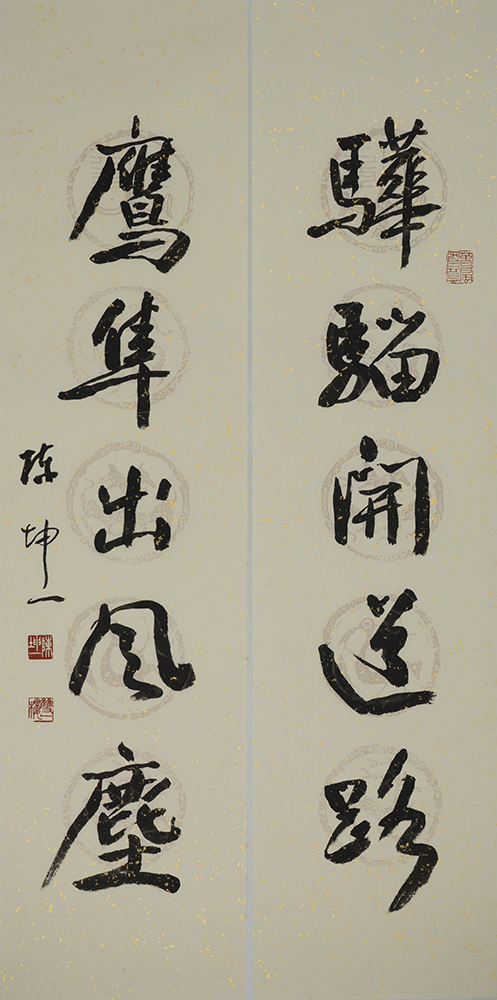 驊騮開道路
鷹隼出風塵
陳坤一
陳坤一